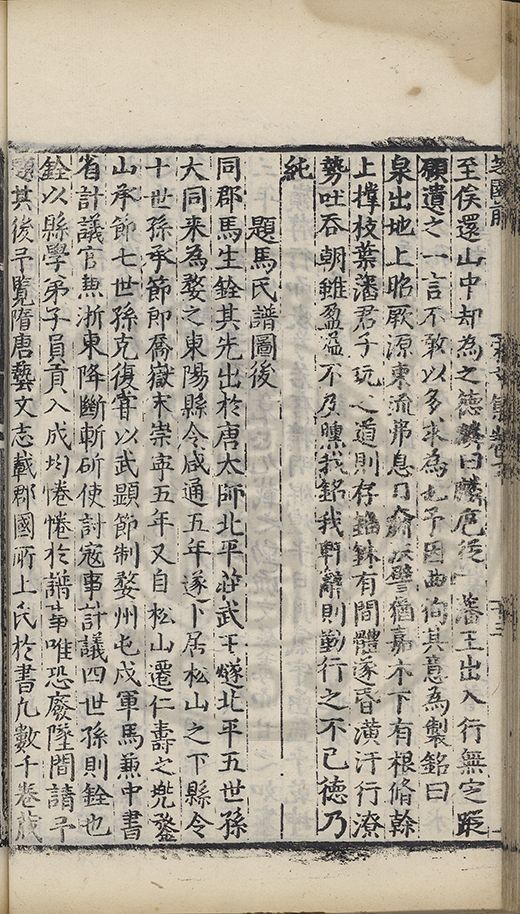 至俟還山中却為之德 曰 扈從 藩王出入行無定蹤
願遺之一言不敢以多求為也予因曲徇其意為製銘曰
泉出地上 厥源東流弗息 譬猶嘉木下有根脩幹
上撐枝葉瀋君子玩之道則存錙銖有間體遂昏潢汙行潦
勢吐吞朝雖盈溢不及曛我銘我 辭則勤行之不已德乃
純
題馬氏譜圖後
同郡馬生銓其先出於唐太師北平莊武王燧北平五世孫
大同來為婺之東陽縣令咸通五年遂卜居松山之下縣令
十世孫承節即喬嶽末崇寧五年又自松山遷仁壽之
山承節七世孫克復 以武顯節制婺州屯戍軍馬兼中書
省計議官無浙東降斷斬斫使討寇事計議四世孫則銓也
銓以縣學弟子員貢入成均惓惓於譜事唯恐廢墜間請予
題其後予覽隋唐藝文志載郡國所上氏於書凡數千卷